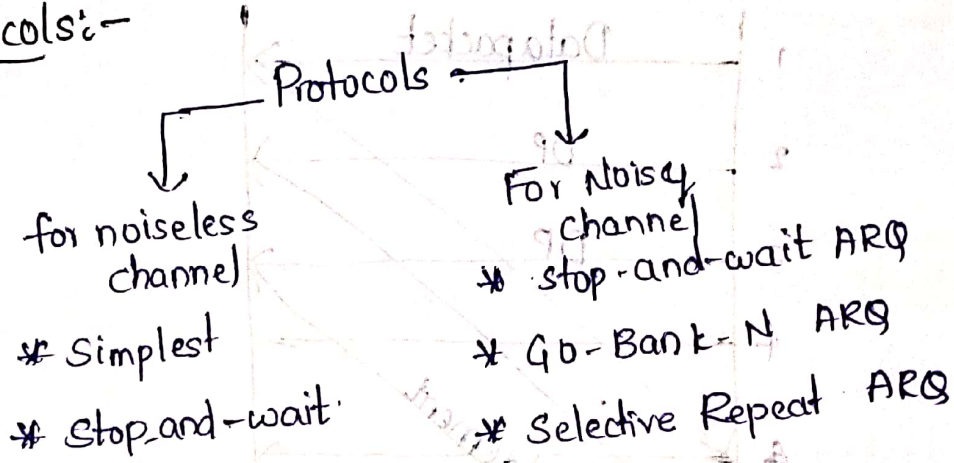 cols:-
Protocols
for noiseless
channel
* Simplest
* Stop-and-wait.
For Noisy
channel
* stop-and-wait ARQ
* Go-Bank-N ARQ
* Selective Repeat ARQ